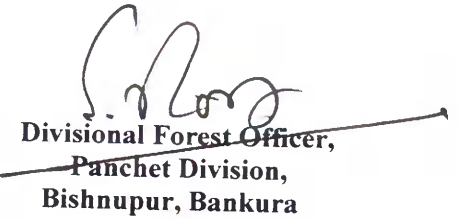 Divisional Forest Officer,
Panchet Division,
Bishnupur, Bankura